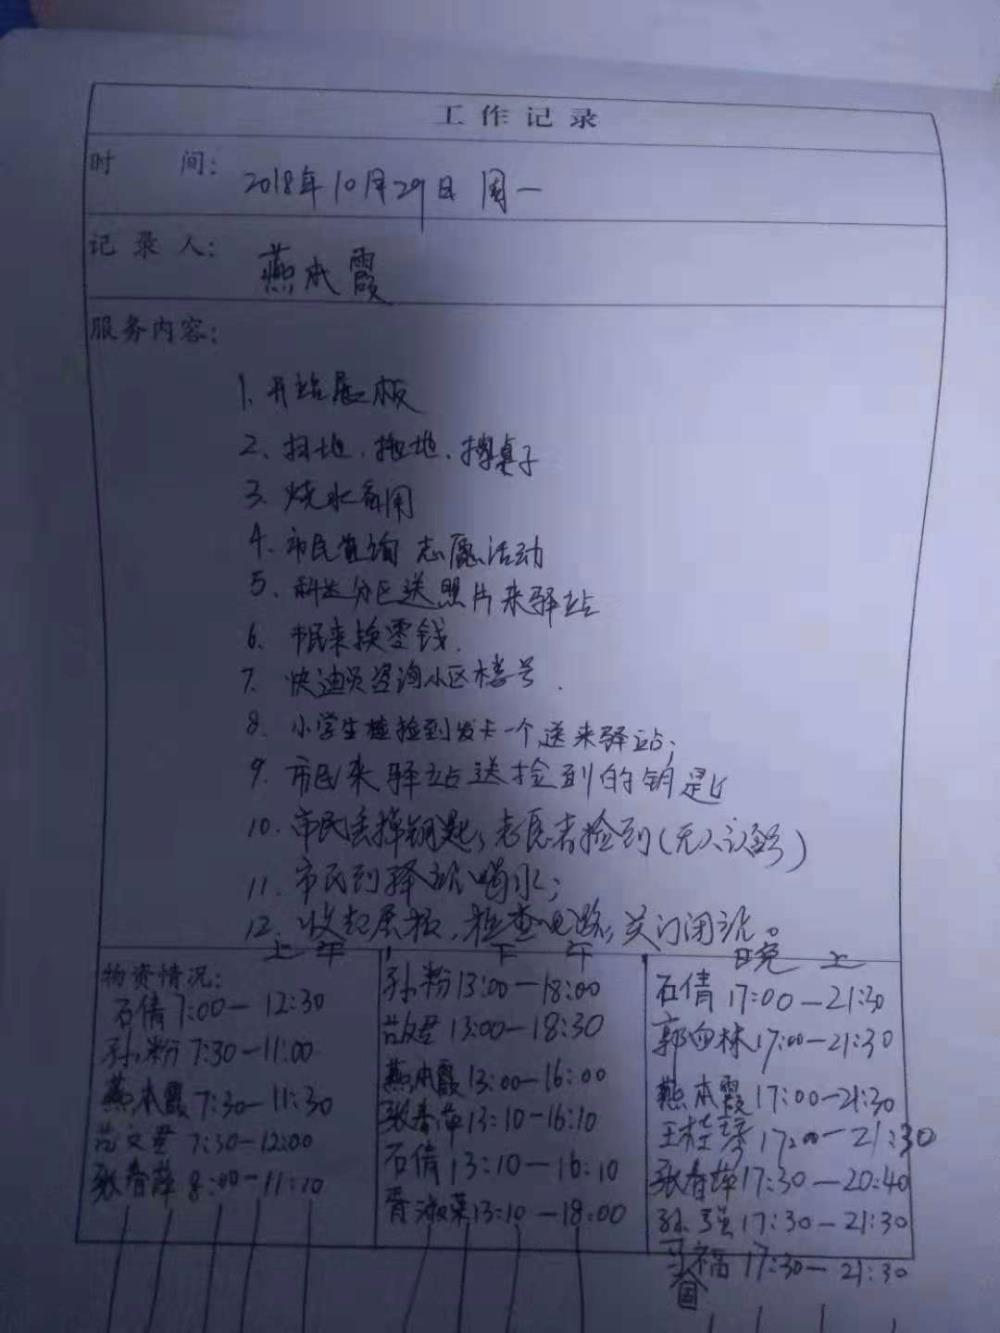 工作记录
时 间： 2018年10月29日 周一
记录人： 燕本霞
服务内容：
1. 开站展板
2、扫地、拖地、擦桌子
3. 烧水备用
4. 市民查询 志愿活动
5、科士分区送照片来驿站
6. 市民来换零钱.
7. 快递员咨询小区楼号.
8. 小学生捡到发卡一个,送来驿站;
9. 市民来驿站送捡到的钥匙
10. 市民丢掉钥匙,志愿者捡到(无人认领)
11. 市民到驿站喝水;
12. 收起展板,检查电路,关门闭站。
上午 下午 晚上
物资情况：
石倩 7:00—12:30
孙粉 7:30—11:00
燕本霞 7:30—11:30
范文君 7:30—12:00
张春萍 8:00—11:10
孙粉 13:00—18:00
13:00—18:30
燕本霞 13:00—16:00
张春萍 13:10—16:10
石倩 13:10—16:10
曹淑英 13:10—18:00
石倩 17:00—21:30
郭向林 17:00—21:30
燕本霞 17:00—21:30
王桂琴 17:00—21:30
张春萍 17:30—20:40
孙强 17:30—21:30
福 17:30—21:30